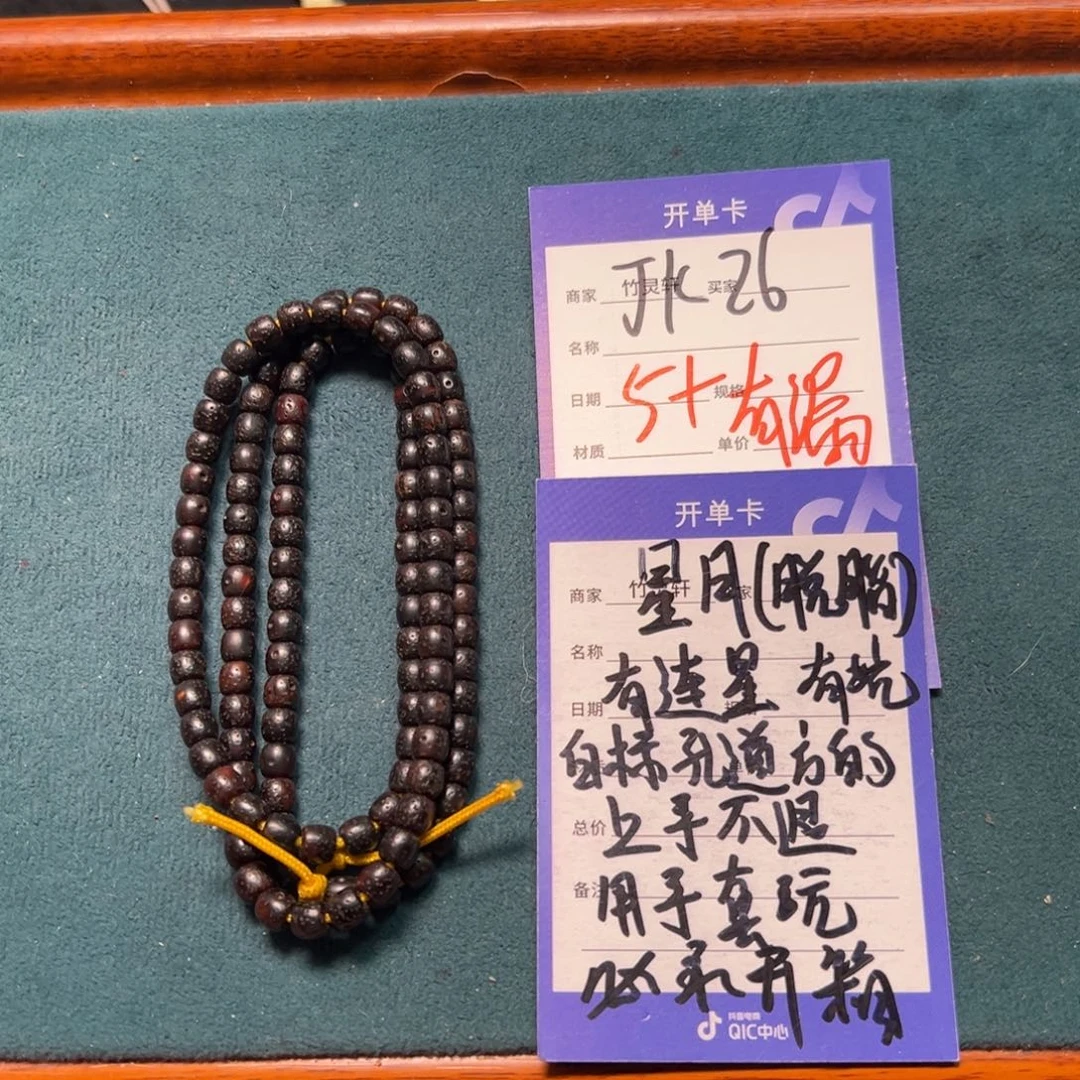 开单卡
JK 26
商家 竹灵轩 买家
名称
5+有漏
日期 规格
材质 单价
开单卡
星月(脱脂)
商家
名称
有连星 有坑
日期
自标孔道方的
总价 上手不退
备注 用手真玩
必录开箱
抖音电商
QIC中心